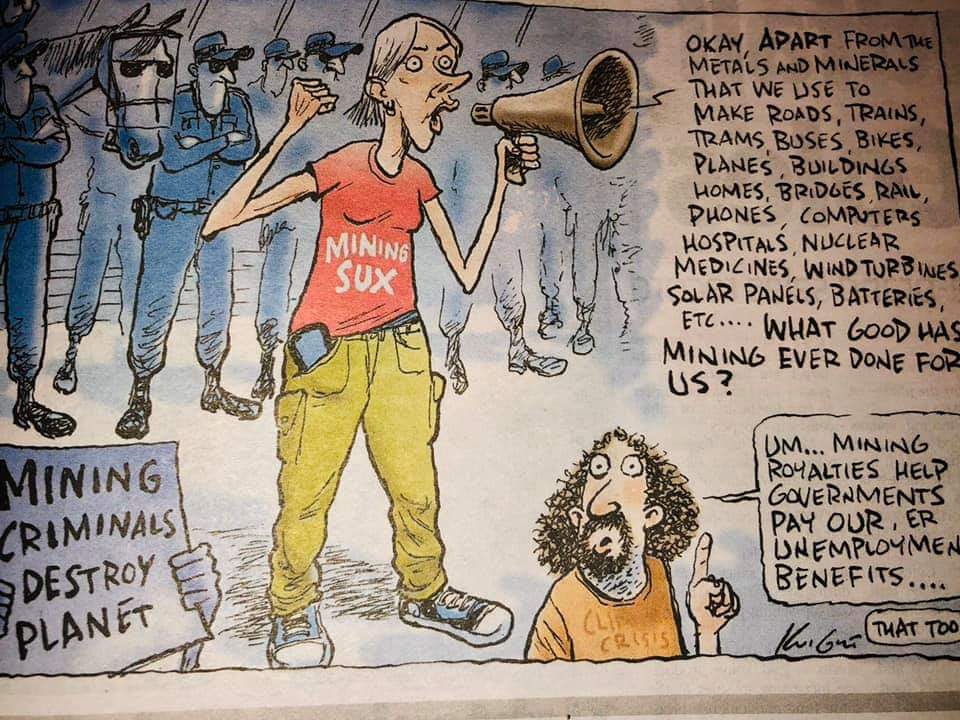 OKAY, APART FROM THE
METALS AND MINERALS
THAT WE USE TO
MAKE ROADS, TRAINS,
TRAMS, BUSES, BIKES,
PLANES, BUILDINGS
HOMES, BRIDGES, RAIL,
PHONES, COMPUTERS
HOSPITALS, NUCLEAR
MEDICINES, WIND TURBINES
SOLAR PANELS, BATTERIES,
ETC.... WHAT GOOD HAS
MINING EVER DONE FOR
US?
MINING
SUX
MINING
CRIMINALS
DESTROY
PLANET
UM... MINING
ROYALTIES HELP
GOVERNMENTS
PAY OUR, ER
UNEMPLOYMEN
BENEFITS....
THAT TOO
CRISIS